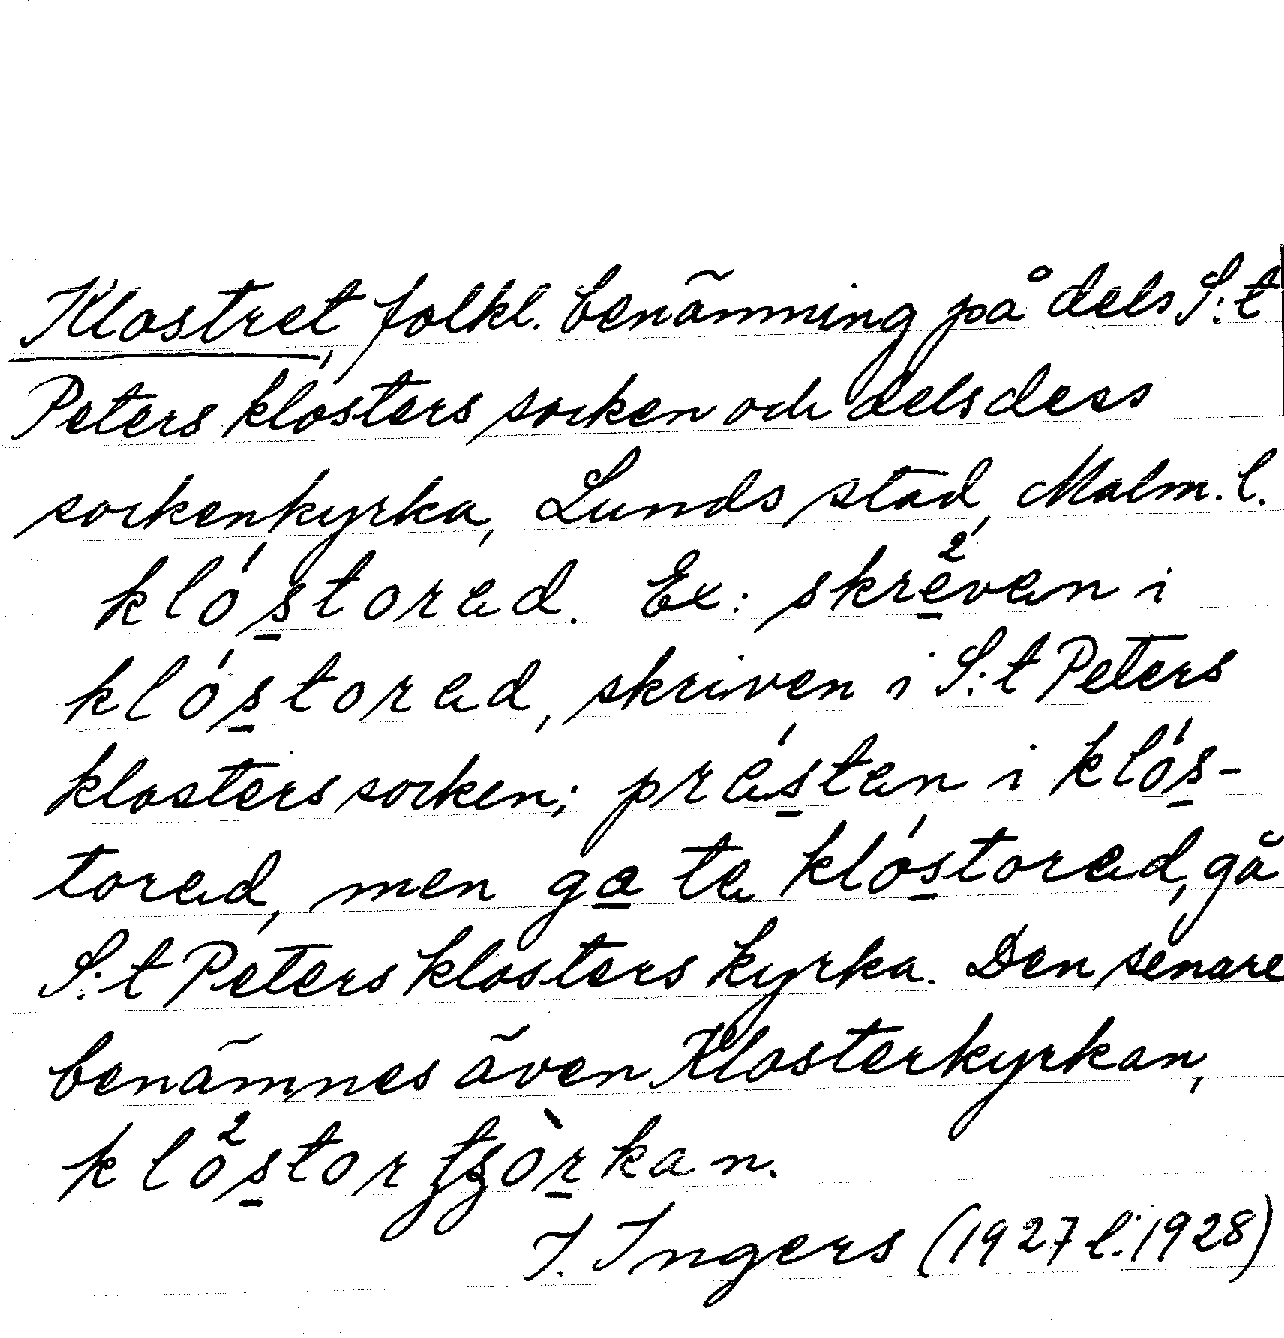 Klostret, folkl. benämning på dels S:t
Peters klosters socken och dels dess
sockenkyrka, Lunds stad, Malm. l.
klóstorad. Ex: skre²van i
klóstorad, skriven i S:t Peters
klosters socken; prästan i klós-
torad, men ga ta klóstorad, gå
S:t Peters klosters kyrka. Den senare
benämnes även Klosterkyrkan,
klo²stortʒòrkan.
I. Ingers (1927 l. 1928)